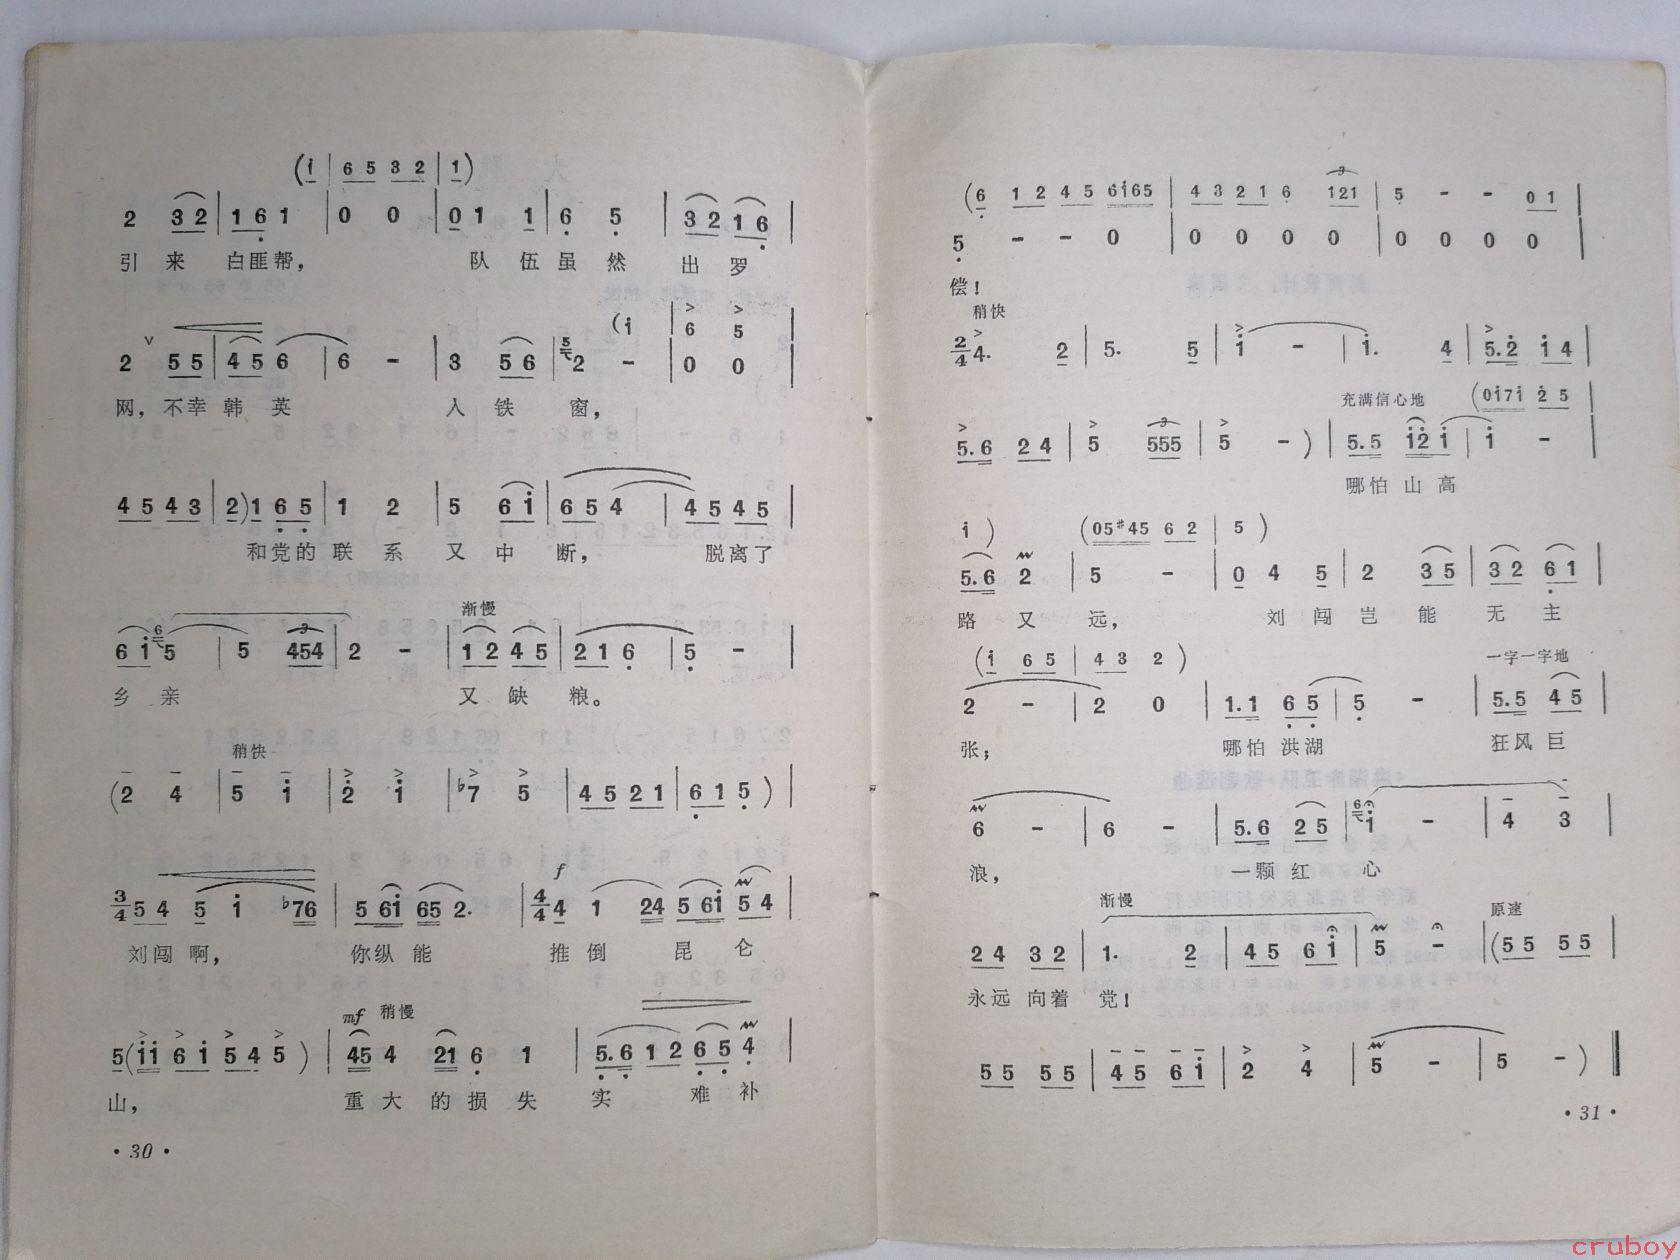 (i̇ | 6 5 3 2 | 1)
2 3 2 | 1 6̣ 1 | 0 0 | 0 1 1 | 6̣ 5̣ | 3 2 1 6̣ |
引 来 白匪帮， 队 伍 虽 然 出 罗
(i̇ | 6 5 |
2 5 5 | 4 5 6 | 6 - | 3 5 6 | 2 - | 0 0 |
网，不幸 韩 英 入 铁 窗，
4 5 4 3 | 2) 1 6̣ 5̣ | 1 2 | 5 6 i̇ | 6 5 4 | 4 5 4 5 |
和党的 联 系 又 中 断， 脱离了
渐慢
6 i̇ 5 | 5 454 | 2 - | 1 2 4 5 | 2 1 6̣ | 5̣ - |
乡 亲 又 缺 粮。
稍快
(2 4 | 5 i̇ | 2̇ i̇ | ♭7 5 | 4 5 2 1 | 6̣ 1 5̣ ) |
f
3/4 5 4 5 i̇ ♭76 | 5 6i̇ 65 2. | 4/4 4 1 24 5 6i̇ 5 4 |
刘闯 啊， 你纵 能 推 倒 昆 仑
mf 稍慢
5(i̇i̇ 6 i̇ 5 4 5 ) | 45 4 21 6̣ 1 | 5̣.6̣ 1 2 6̣ 5̣ 4̣ |
山， 重 大 的 损 失 实 难 补
· 30 ·
(6̣ 1 2 4 5 6i̇65 | 4 3 2 1 6̣ 121 | 5 - - 0 1 |
5̣ - - 0 | 0 0 0 0 | 0 0 0 0 |
偿！
稍快
2/4 4. 2 | 5. 5 | i̇ - | i̇. 4 | 5.2̇ i̇ 4 |
充满信心地 (0i̇7i̇ 2̇ 5 |
5.6 2 4 | 5 555 | 5 - ) | 5.5 i̇2̇ i̇ | i̇ - |
哪怕 山 高
i̇ ) (05♯45 6 2 | 5 )
5.6 2 | 5 - | 0 4 5 | 2 3 5 | 3 2 6̣ 1 |
路 又 远， 刘 闯 岂 能 无 主
(i̇ 6 5 | 4 3 2 ) 一字一字地
2 - | 2 0 | 1.1 6̣ 5̣ | 5̣ - | 5.5 4 5 |
张； 哪怕 洪湖 狂风 巨
6 - | 6 - | 5.6 2 5 | i̇ - | 4 3 |
浪， 一颗 红 心
渐慢 原速
2 4 3 2 | 1. 2 | 4 5 6 i̇ | 5 - | (5 5 5 5 |
永远 向着 党！
5 5 5 5 | 4 5 6 i̇ | 2 4 | 5 - | 5 - ) ‖
· 31 ·
cruboy